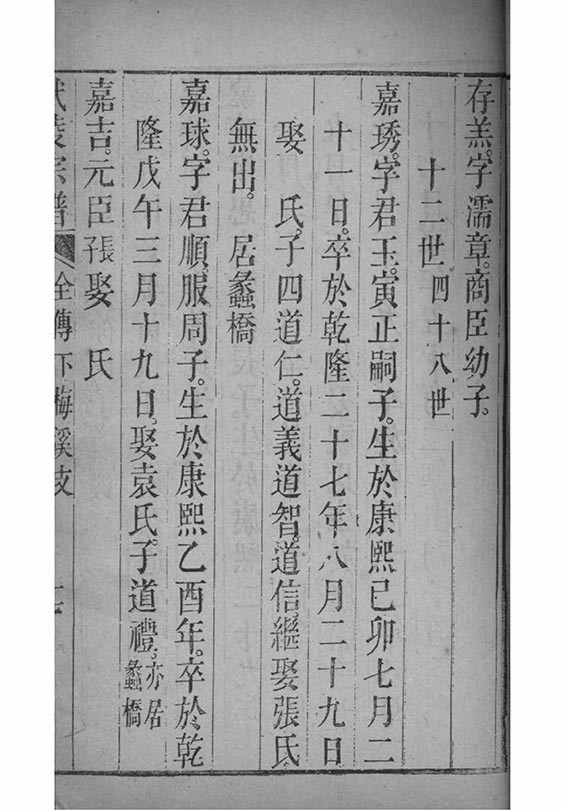 存羔。字濡章。商臣幼子。
十二世 四十八世
嘉琇。字君玉。寅正嗣子。生於康熙己卯七月二
十一日。卒於乾隆二十七年八月二十九日
娶 氏。子四道仁。道義道智。道信。繼娶張氏
無出。居蠡橋
嘉球。字君順。服周子。生於康熙乙酉年。卒於乾
隆戊午三月十九日。娶袁氏。子道禮。亦居蠡橋
嘉吉。元臣子。張娶 氏
宗譜 全傳下梅溪支